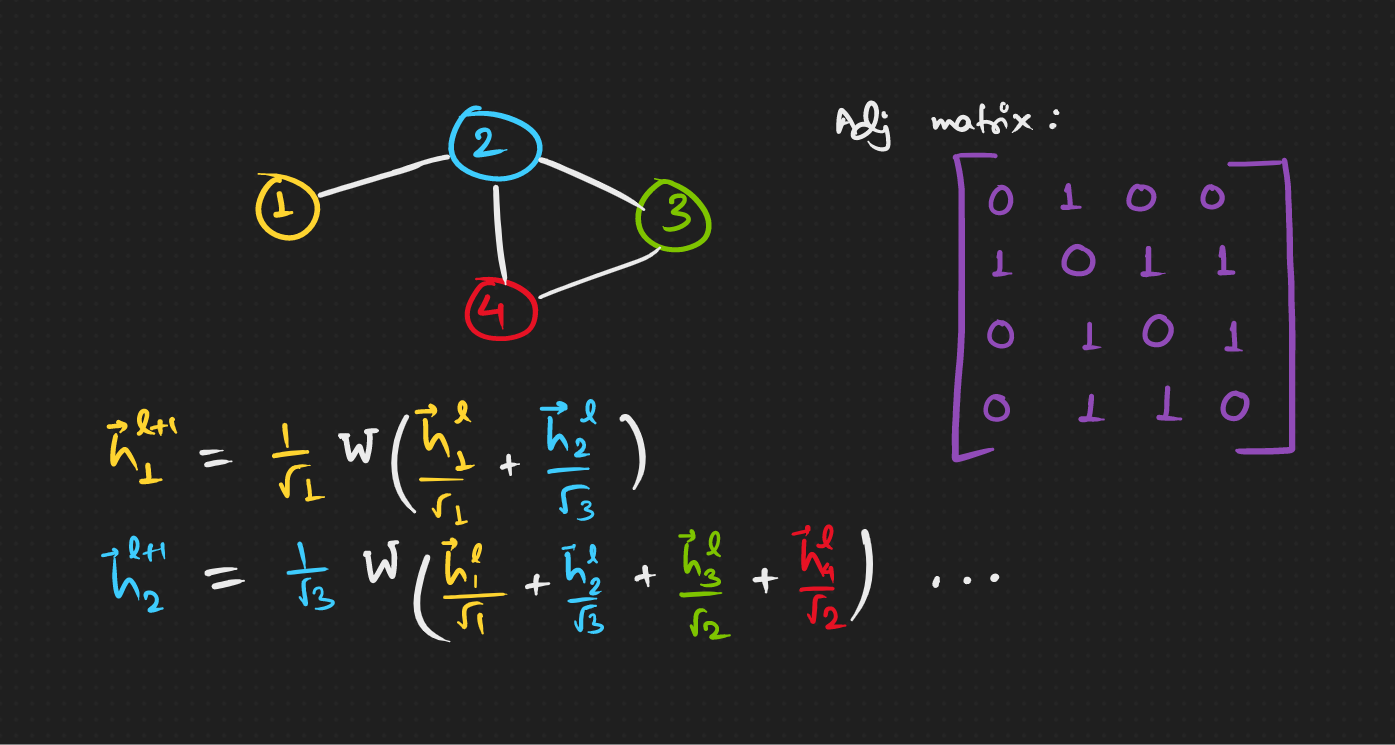 2
1
3
4
Adj matrix :
0 1 0 0
1 0 1 1
0 1 0 1
0 1 1 0
h⃗₁^{l+1} = 1/√1 W ( h⃗₁^l/√1 + h⃗₂^l/√3 )
h⃗₂^{l+1} = 1/√3 W ( h⃗₁^l/√1 + h⃗₂^l/√3 + h⃗₃^l/√2 + h⃗₄^l/√2 ) ...